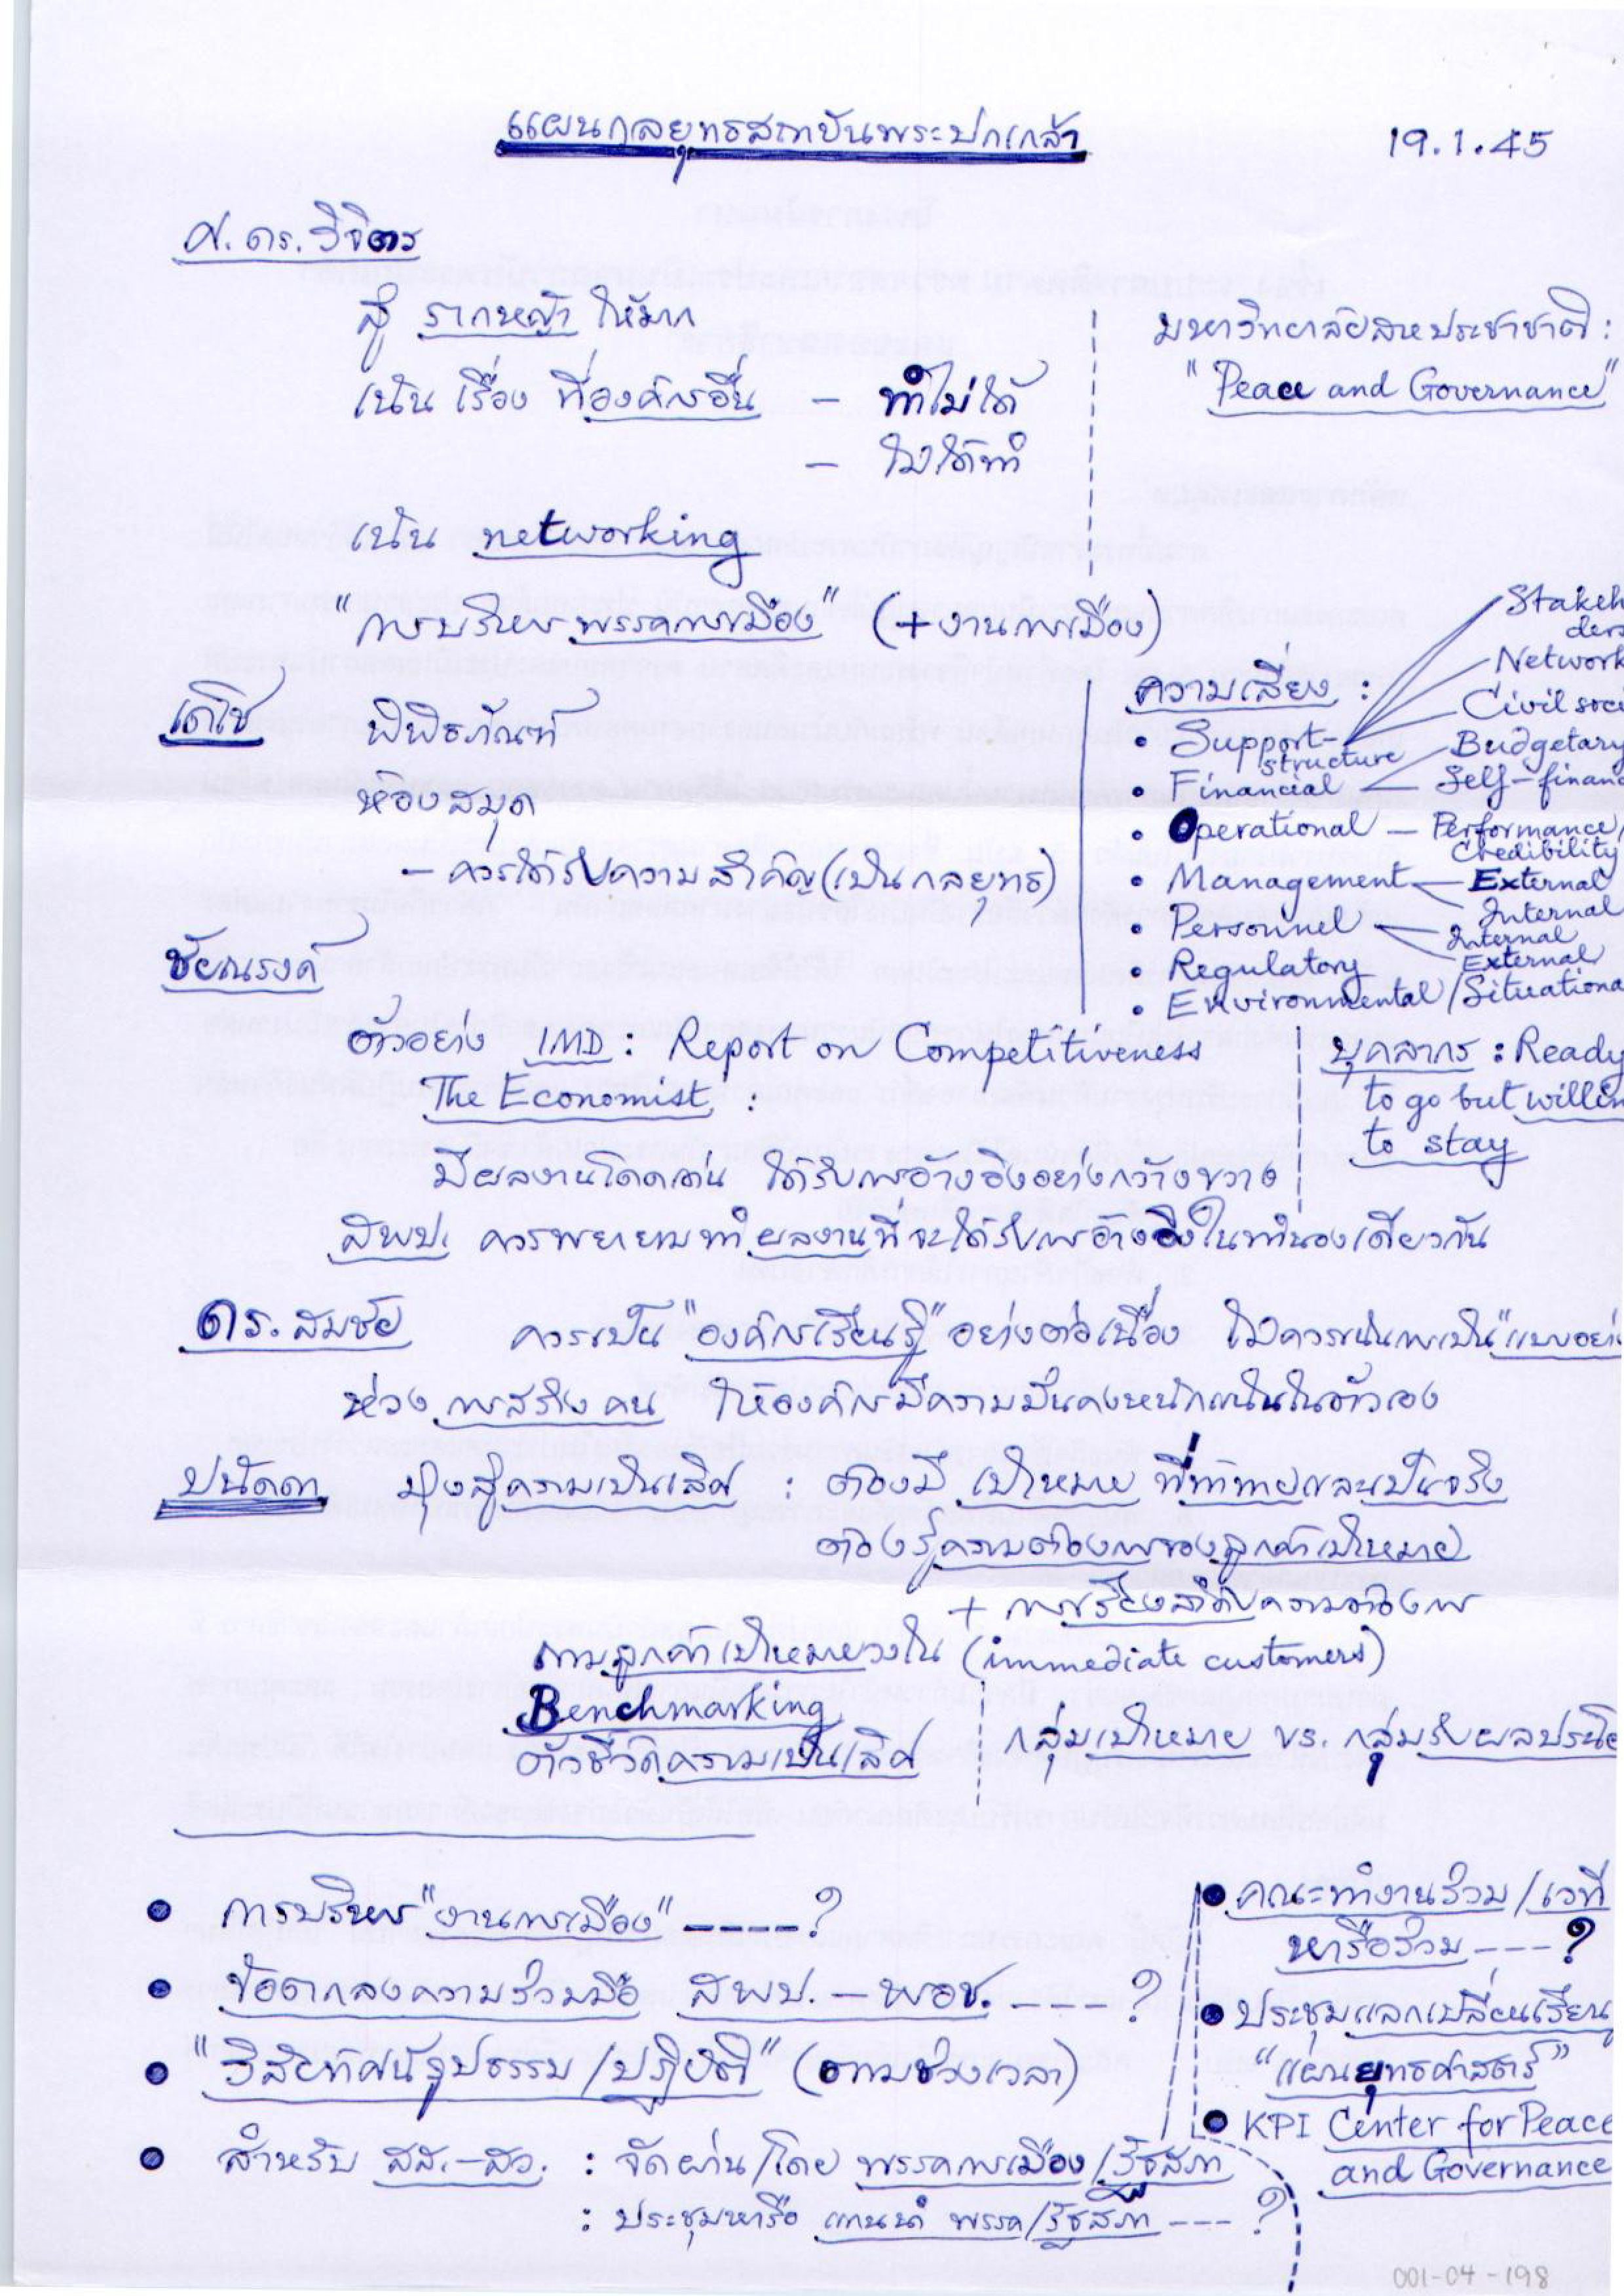 แผนกลยุทธสถาบันพระปกเกล้า
19.1.45
ศ. ดร. วิจิตร
สู่ รากหญ้า ให้มาก
เน้น เรื่อง ที่องค์กรอื่น – ทำไม่ได้
– ไม่ได้ทำ
มหาวิทยาลัยสหประชาชาติ :
"Peace and Governance"
เน้น networking
"การบริหารพรรคการเมือง" (+งานการเมือง)
เดโช พิพิธภัณฑ์
ห้องสมุด
– ควรได้รับความสำคัญ (เป็นกลยุทธ)
ความเสี่ยง :
• Support-structure
Stakeh
ders
Network
Civil soci
• Financial
Budgetary
Self-financ
• Operational – Performance/
Credibility
• Management
External
Internal
• Personnel
Internal
External
• Regulatory
• Environmental/Situationa
ชัยณรงค์
ตัวอย่าง IMD : Report on Competitiveness
The Economist :
มีผลงานโดดเด่น ได้รับการอ้างอิงอย่างกว้างขวาง
บุคลากร : Ready
to go but willin
to stay
สพป. ควรพยายามทำผลงานที่จะได้รับการอ้างอิงในทำนองเดียวกัน
ดร. สมชัย ควรเป็น "องค์กรเรียนรู้" อย่างต่อเนื่อง ไม่ควรเน้นการเป็น "แบบอย่า
ห่วง การสร้าง คน ให้องค์กรมีความมั่นคงหนักแน่นในตัวเอง
ปนัดดา มุ่งสู่ความเป็นเลิศ : ต้องมี เป้าหมาย ที่ท้าทายและเป็นจริง
ต้องรู้ความต้องการของลูกค้าเป้าหมาย
+ การเรียงลำดับความต้องการ
ถามลูกค้าเป้าหมายวงใน (immediate customers)
Benchmarking
ตัวชี้วัดความเป็นเลิศ
กลุ่มเป้าหมาย vs. กลุ่มรับผลประโย
• การบริหาร "งานการเมือง" ----?
• ข้อตกลงความร่วมมือ สพป. – พอช. ----?
• "วิสัยทัศน์รูปธรรม/ปฏิบัติ" (ตามช่วงเวลา)
• สำหรับ สส.–สว. : จัดผ่าน/โดย พรรคการเมือง/รัฐสภา
: ประชุมหารือ แกนนำ พรรค/รัฐสภา ---?
• คณะทำงานร่วม/เวที
หารือร่วม ---?
• ประชุมแลกเปลี่ยนเรียน
"แผ่นยุทธศาสตร์"
• KPI Center for Peace
and Governance
001-04-198